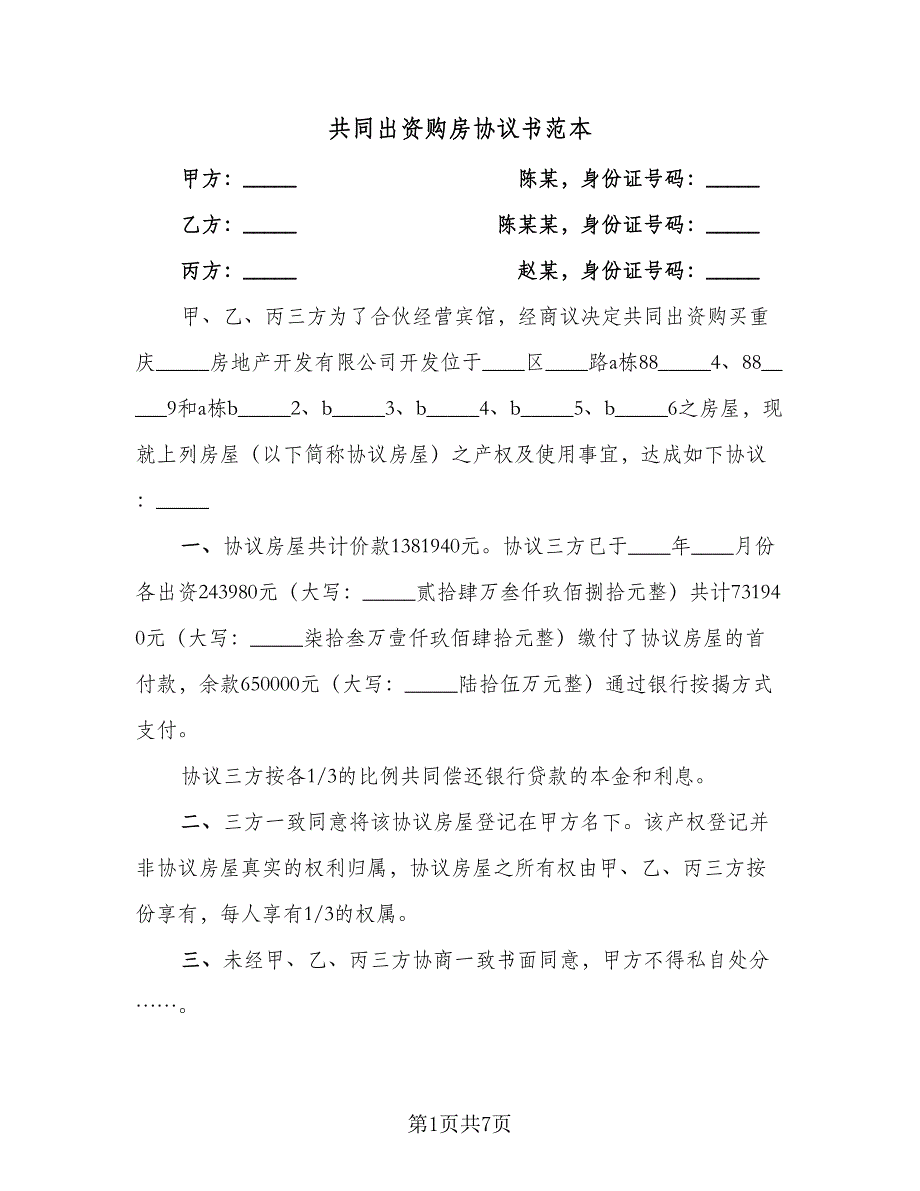 共同出资购房协议书范本
甲方：_____ 陈某，身份证号码：_____
乙方：_____ 陈某某，身份证号码：_____
丙方：_____ 赵某，身份证号码：_____
甲、乙、丙三方为了合伙经营宾馆，经商议决定共同出资购买重
庆_____房地产开发有限公司开发位于____区____路a栋88_____4、88__
___9和a栋b_____2、b_____3、b_____4、b_____5、b_____6之房屋，现
就上列房屋（以下简称协议房屋）之产权及使用事宜，达成如下协议
：_____
一、协议房屋共计价款1381940元。协议三方已于____年____月份
各出资243980元（大写：_____贰拾肆万叁仟玖佰捌拾元整）共计73194
0元（大写：_____柒拾叁万壹仟玖佰肆拾元整）缴付了协议房屋的首
付款，余款650000元（大写：_____陆拾伍万元整）通过银行按揭方式
支付。
协议三方按各1/3的比例共同偿还银行贷款的本金和利息。
二、三方一致同意将该协议房屋登记在甲方名下。该产权登记并
非协议房屋真实的权利归属，协议房屋之所有权由甲、乙、丙三方按
份享有，每人享有1/3的权属。
三、未经甲、乙、丙三方协商一致书面同意，甲方不得私自处分
……。
第1页共7页